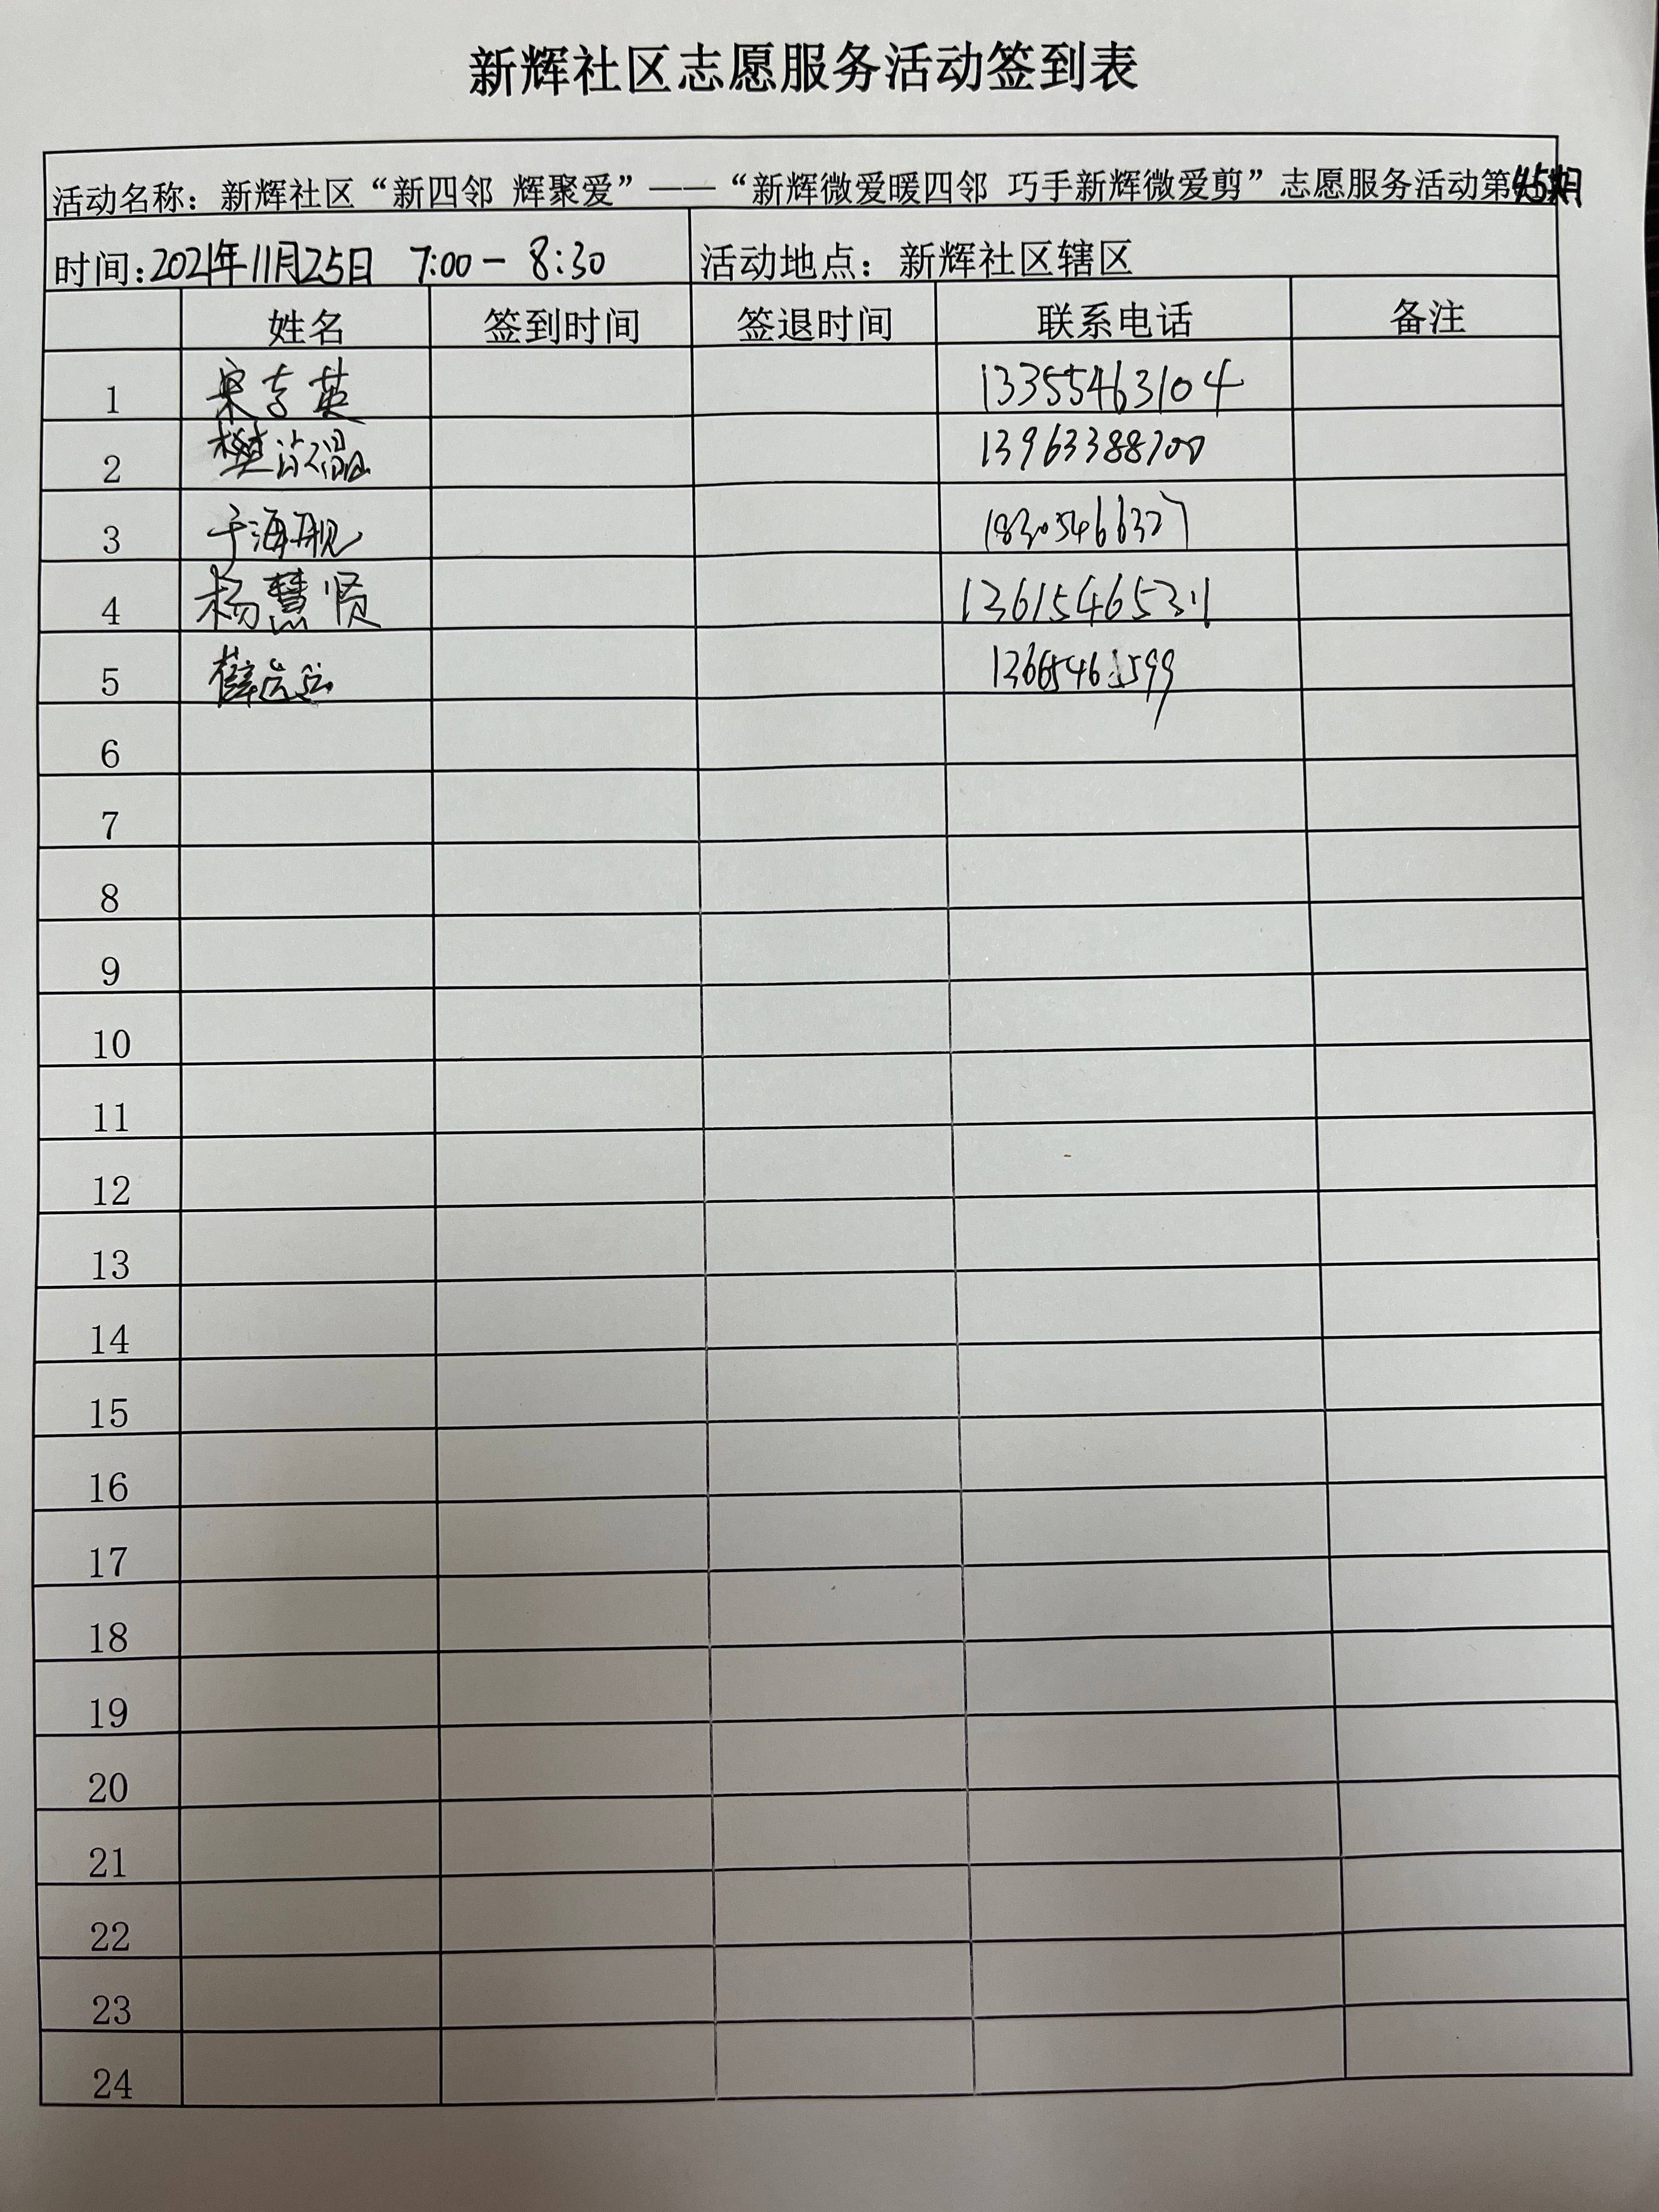 新辉社区志愿服务活动签到表
活动名称：新辉社区“新四邻 辉聚爱”——“新辉微爱暖四邻 巧手新辉微爱剪”志愿服务活动第45期
时间:2021年11月25日 7:00-8:30 活动地点：新辉社区辖区
姓名 签到时间 签退时间 联系电话 备注
1 13355463104
2 13963388700
3 于海舰 18305466327
4 杨慧贤 13615465311
5 薛
6
7
8
9
10
11
12
13
14
15
16
17
18
19
20
21
22
23
24